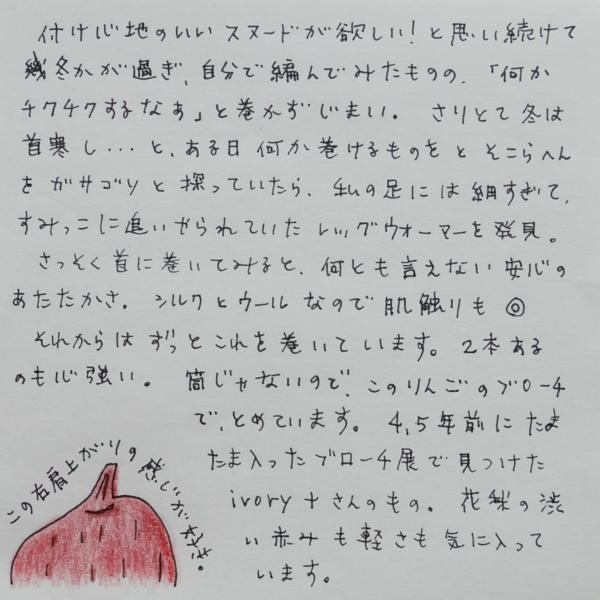 付け心地のいいスヌードが欲しい！と思い続けて
幾冬かが過ぎ、自分で編んでみたものの、「何か
チクチクするなぁ」と巻かずじまい。さりとて冬は
首寒し・・・と、ある日何か巻けるものをとそこらへん
をガサゴソと探っていたら、私の足には細すぎて、
すみっこに追いやられていたレッグウォーマーを発見。
さっそく首に巻いてみると、何とも言えない安心の
あたたかさ。シルクとウールなので肌触りも◎
それからはずっとこれを巻いています。2本ある
のも心強い。筒じゃないので、このりんごのブローチ
で、とめています。4,5年前にたま
たま入ったブローチ展で見つけた
ivory+さんのもの。花梨の渋
い赤みも軽さも気に入って
います。
この右肩上がりの感じが好き。